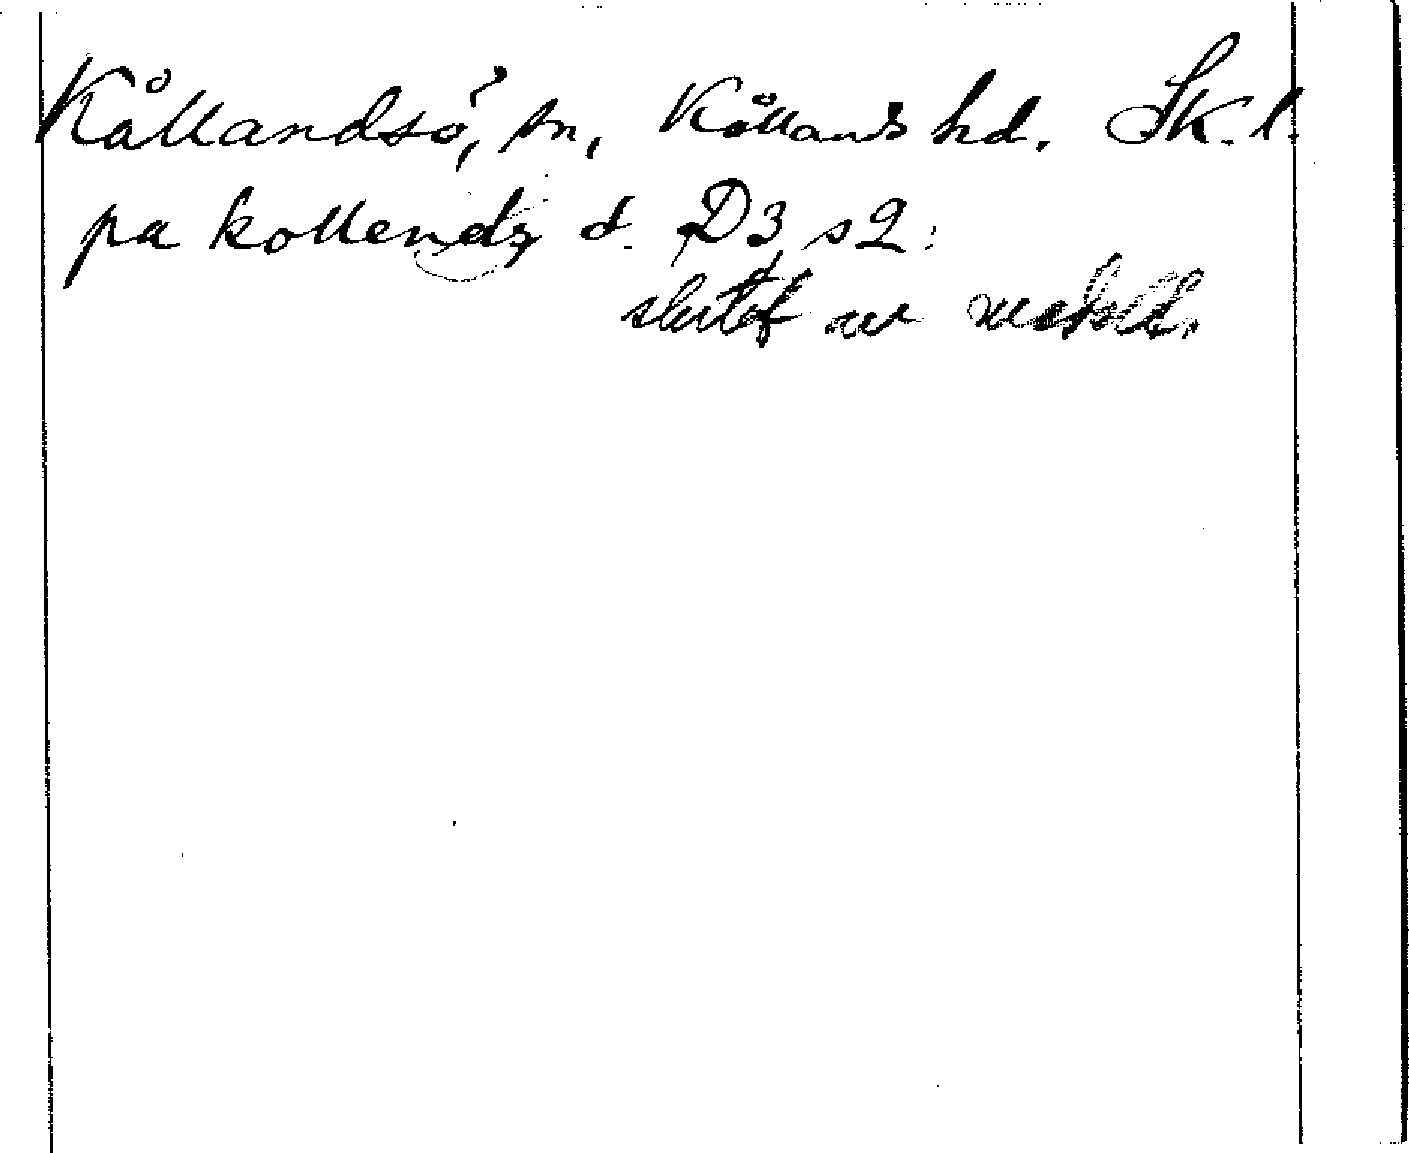 Kållandsö, sn, Kållands hd. Sk. l.
pa kollendz ø D3 s 2.
slutet av